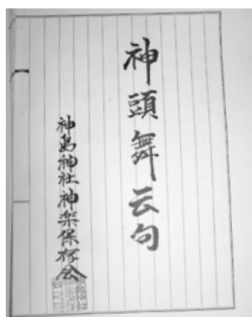 神頭舞云句
神島神社神楽保存会